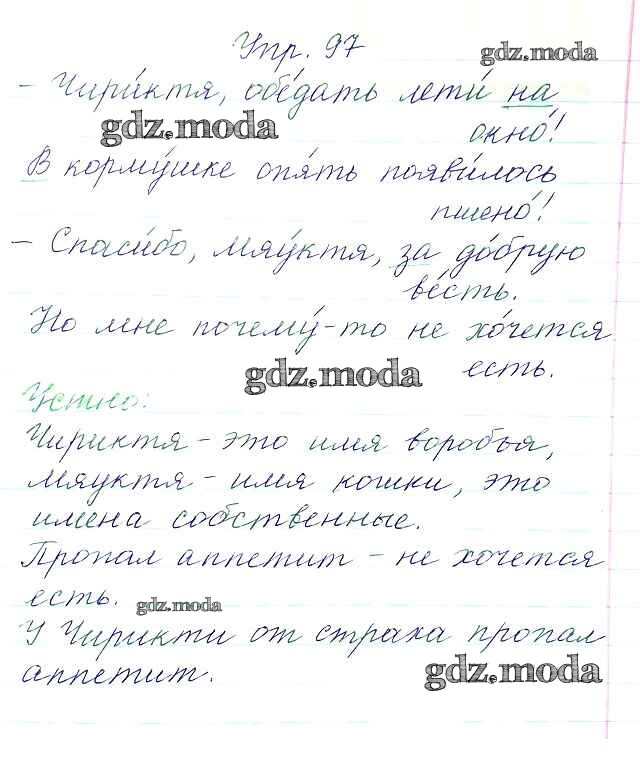 Упр. 97
gdz.moda
– Чири́ктя, обе́дать лети́ на
gdz.moda
окно́!
В корму́шке опя́ть появи́лось
пшено́!
– Спаси́бо, Мяу́ктя, за до́брую
ве́сть.
Но мне почему́-то не хо́чется
есть.
gdz.moda
Устно:
Чириктя – это имя воробья,
Мяуктя – имя кошки, это
имена собственные.
Пропал аппетит – не хочется
есть.
gdz.moda
У Чирикти от страха пропал
аппетит.
gdz.moda